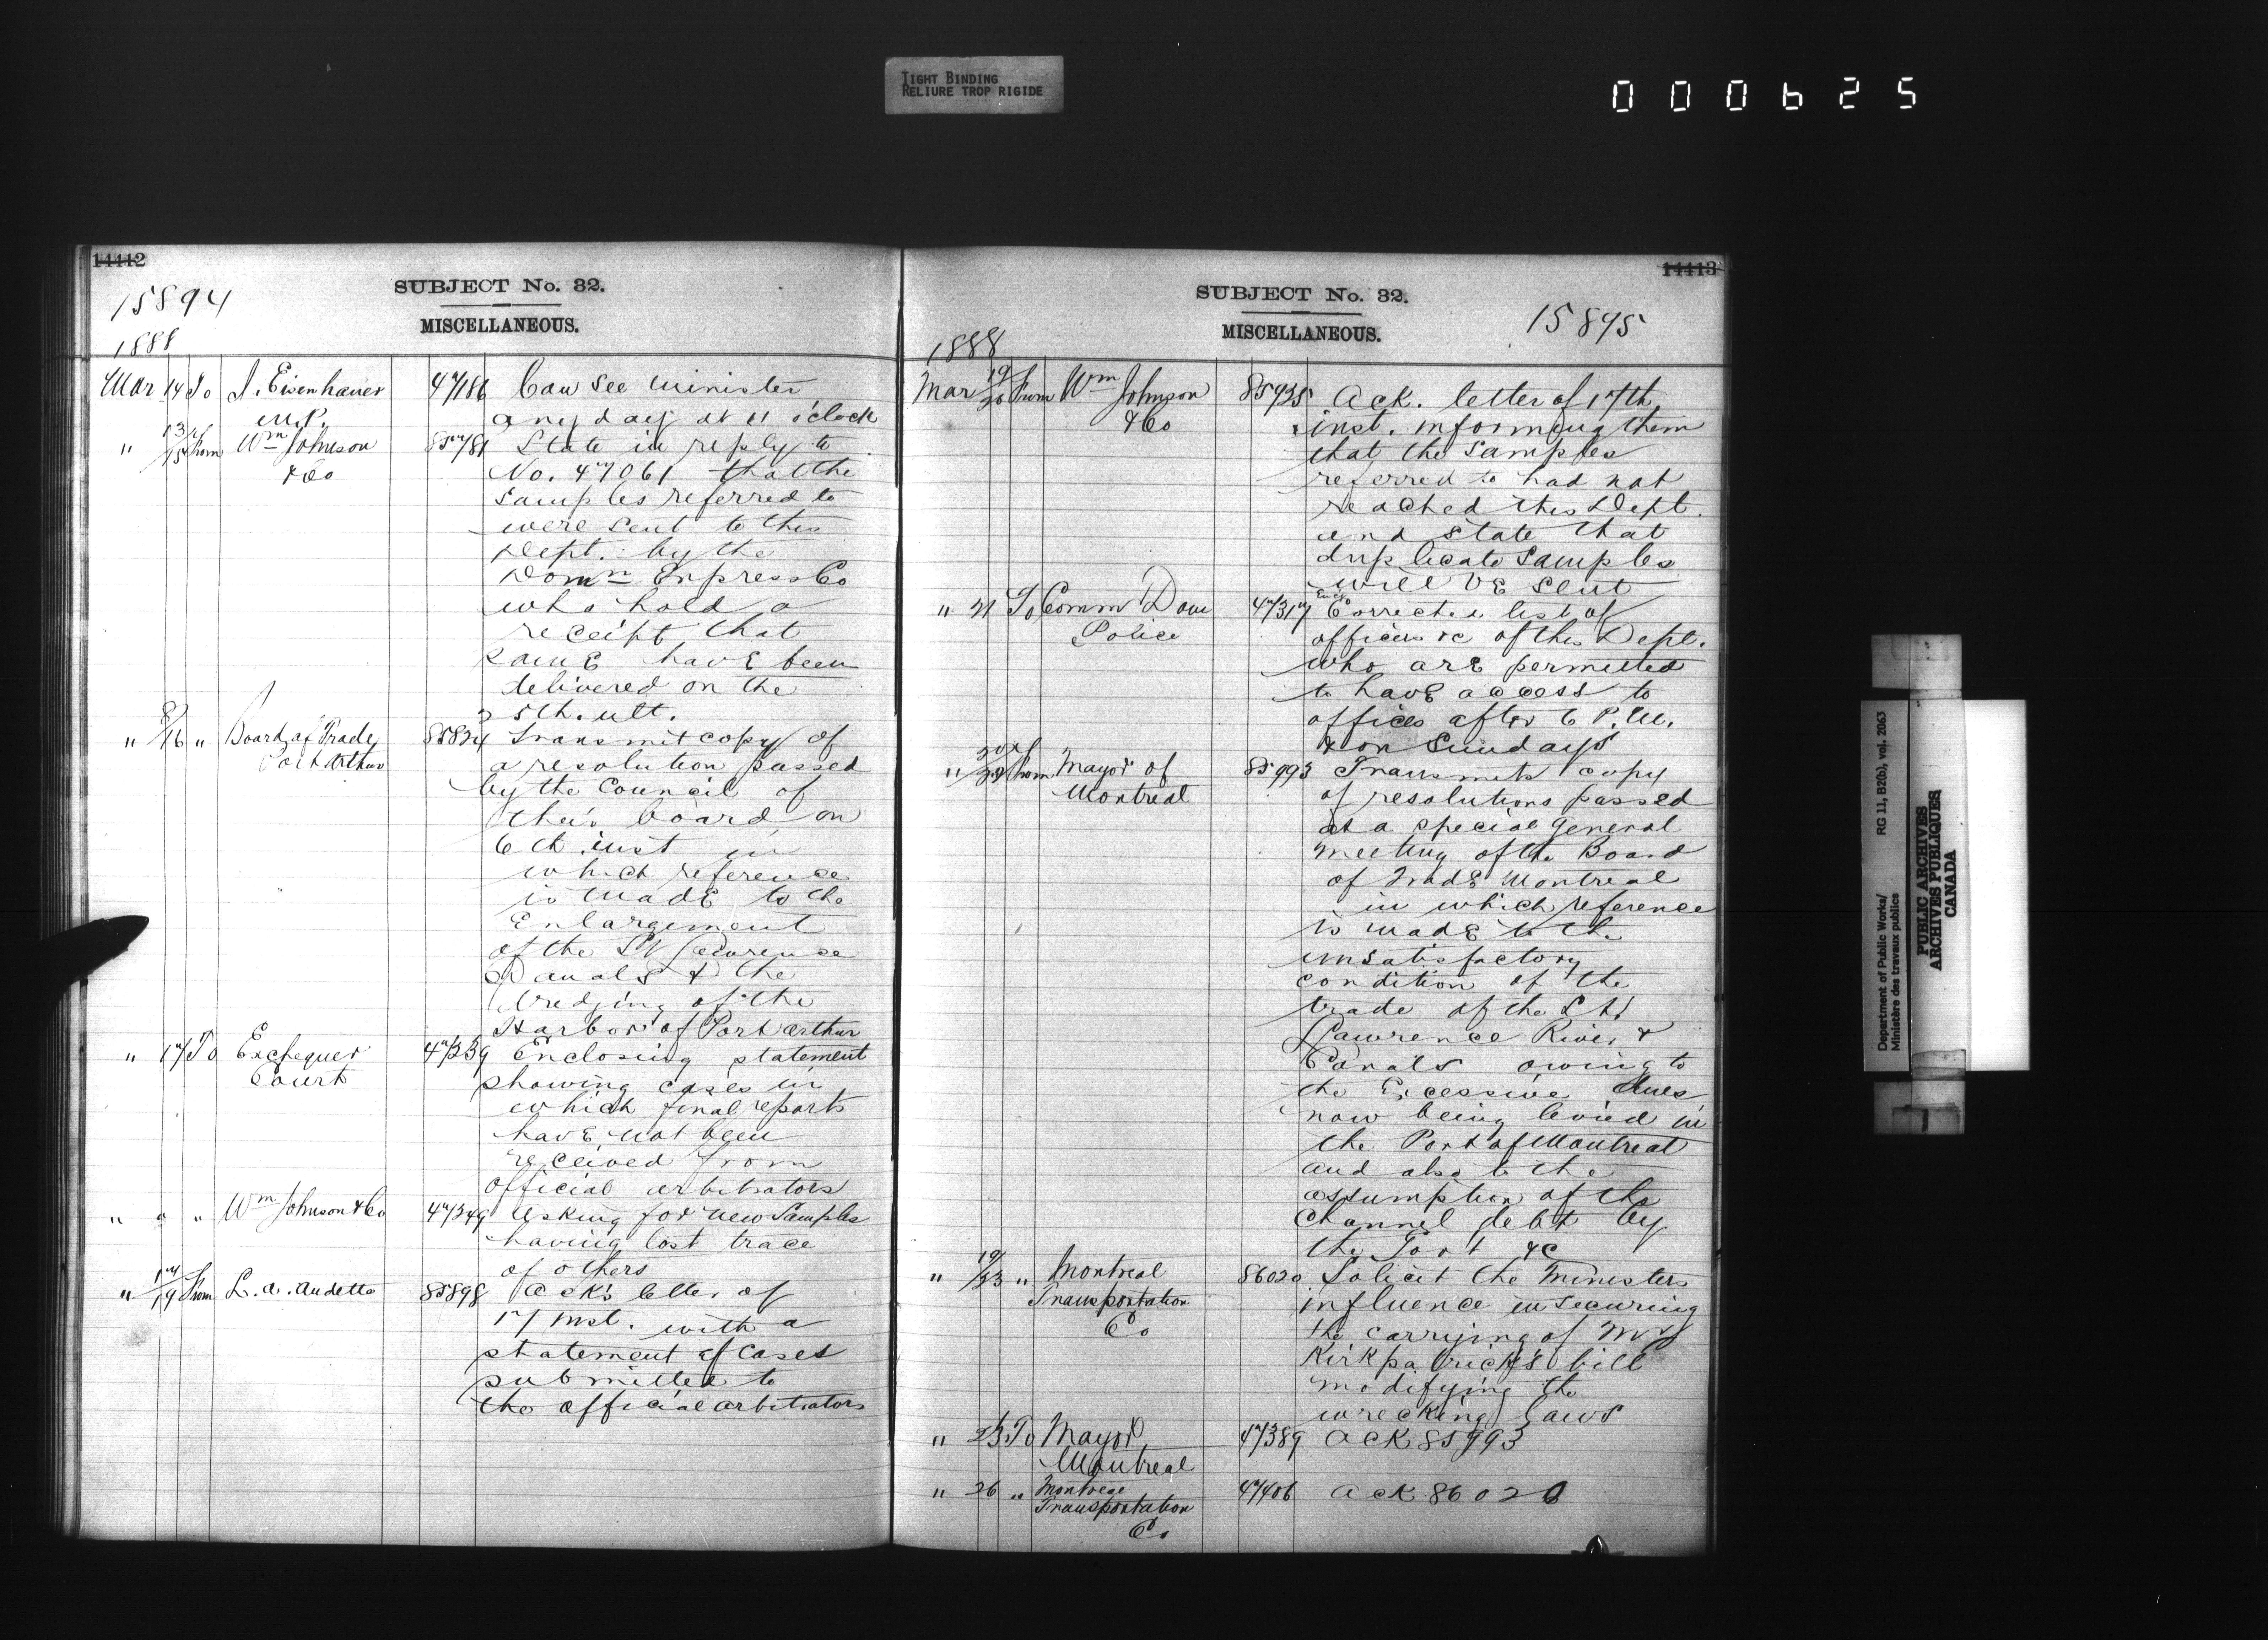 TIGHT BINDING
RELIURE TROP RIGIDE
000625
14412
SUBJECT No. 32.
15894
MISCELLANEOUS.
1888
Mar 14 To J. Eisenhauer 47186 Can see Minister
M.P. any day at 11 o'clock
" 13/15 From Wm Johnson 85781 State in reply to
& Co No. 47061 that the
samples referred to
were sent to this
Dept. by the
Domn Express Co
who hold a
receipt that
same have been
delivered on the
5th. ult.
" 8/16 " Board of Trade 85824 Transmit copy of
Port Arthur a resolution passed
by the Council of
their board on
6th inst in
which reference
is made to the
Enlargement
of the St Lawrence
Canals & the
dredging of the
Harbor of Port Arthur
" 17 To Exchequer 47239 Enclosing statement
Court showing cases in
which final reports
have not been
received from
official arbitrators
" " " Wm Johnson & Co 47249 Asking for new Samples
having lost trace
of others
" 17/19 From L. A. Audette 85898 Ack's letter of
17 inst. with a
statement of cases
submitted to
the official arbitrators
14413
SUBJECT No. 32.
15895
MISCELLANEOUS.
1888
Mar 19/20 From Wm Johnson 85925 Ack. letter of 17th
& Co inst. informing them
that the samples
referred to had not
reached this Dept.
and state that
duplicate samples
will be sent
" 21 To Comm Dom 47317 Corrected list of
Police officers &c of this Dept.
who are permitted
to have access to
offices after 6 P.M.
& on Sundays
" From Mayor of 85993 Transmits copy
Montreal of resolutions passed
at a special general
meeting of the Board
of Trade Montreal
in which reference
is made to the
unsatisfactory
condition of the
trade of the St.
Lawrence River &
Canals owing to
the Excessive dues
now being levied in
the Port of Montreal
and also to the
assumption of the
Channel debt by
the Port &c
" 19/23 " Montreal 86020 Solicit the Ministers
Transportation influence in securing
Co the carrying of Mr
Kirkpatrick's bill
modifying the
wrecking laws
" 23 To Mayor 47389 Ack 85993
Montreal
" 26 " Montreal 47406 Ack 86020
Transportation
Co
Department of Public Works/
Ministère des travaux publics
RG 11, B2(b), vol. 2063
PUBLIC ARCHIVES
ARCHIVES PUBLIQUES
CANADA